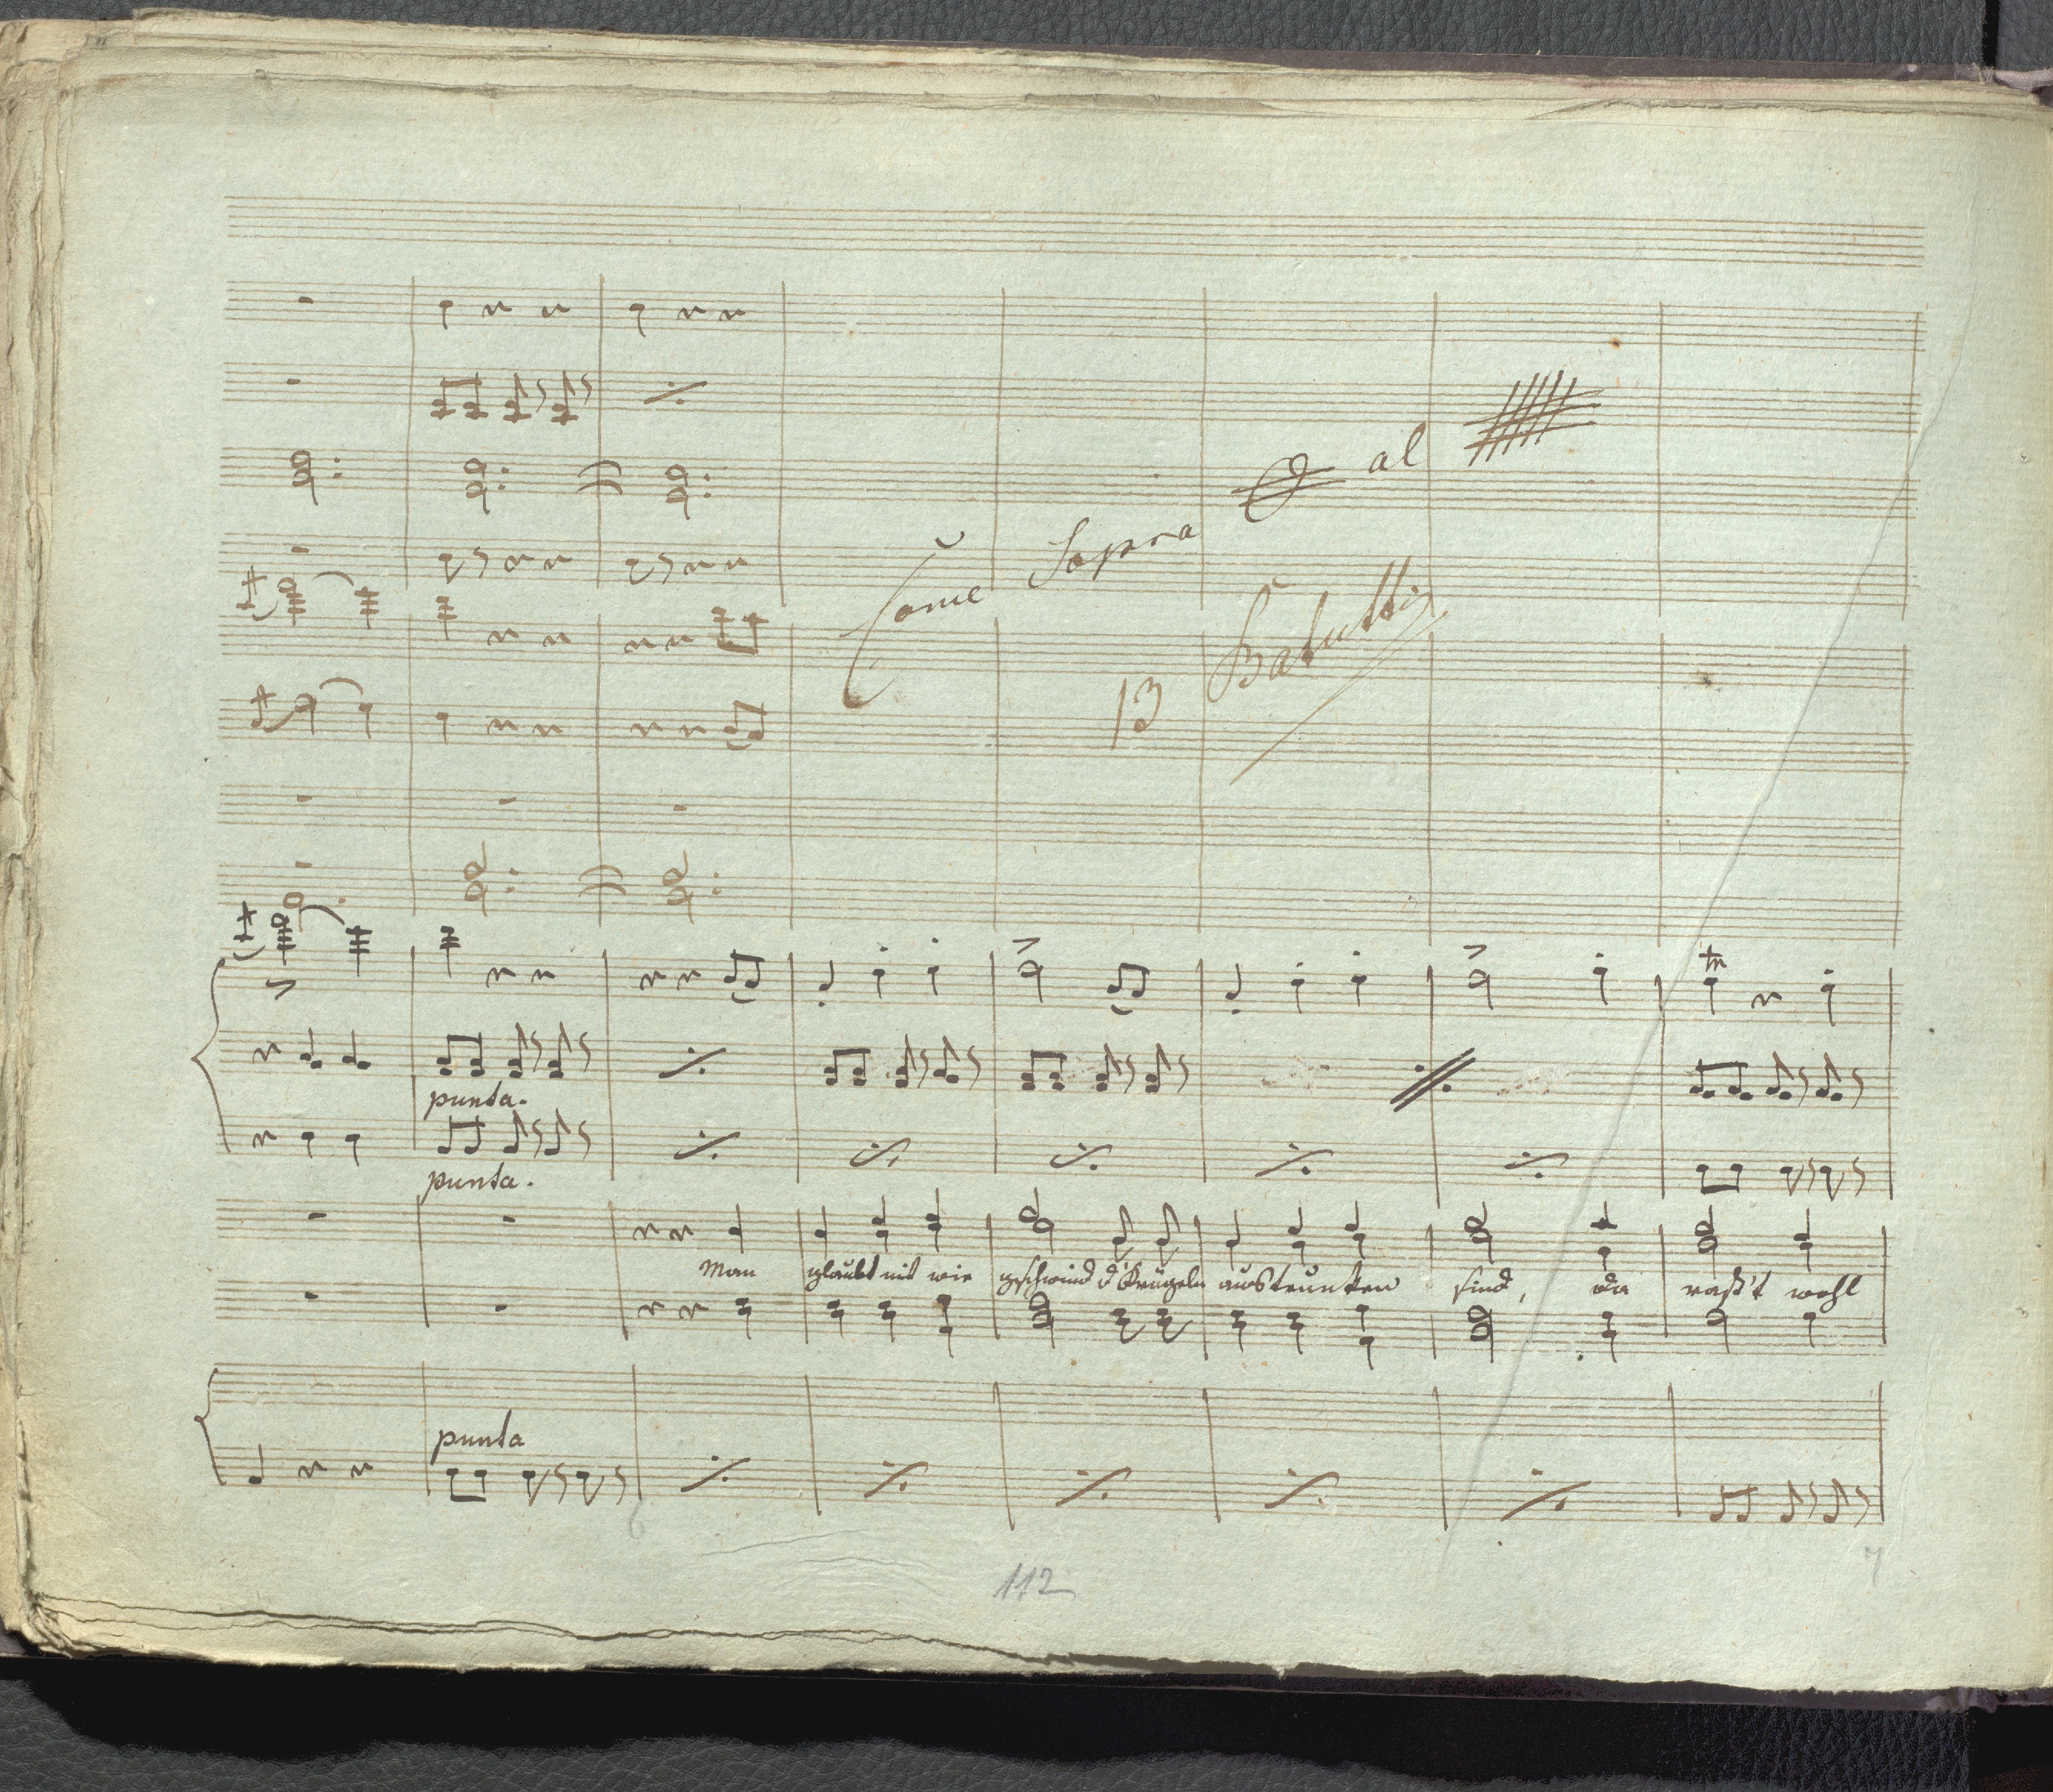 Come Sopra al
13 Battutti
punta.
punta.
Man glaubt nit wie geschwind d'Krügeln austrunken sind, da raßt wohl
punta
6
112
7